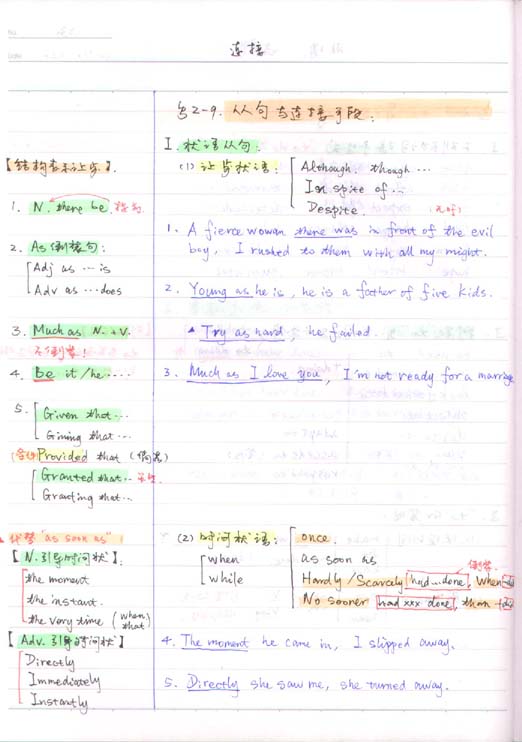 连接
§2-9. 从句与连接手段.
I. 状语从句:
【结构表示让步】.
(1) 让步状语:
Although, though ...
In spite of ...
Despite.
1. N. there be.
1. A fierce woman there was in front of the evil
boy, I rushed to them with all my might.
2. As 倒装句:
Adj as ... is
Adv as ... does
2. Young as he is, he is a father of five kids.
3. Much as N. + V.
不倒装!
▲ Try as hard, he failed.
4. Be it/he ....
3. Much as I love you, I'm not ready for a marriage
5. Given that ...
Giving that ...
Provided that
Granted that...
Granting that...
代替 "as soon as"!
(2) 时间状语:
when
while
once.
as soon as
倒装.
Hardly/Scarcely had...done, when + did
No sooner had xxx done, than + did
【N. 引导时间状】.
the moment
the instant.
the very time (when
that)
【Adv. 引导时间状】
Directly
Immediately
Instantly
4. The moment he came in, I slipped away.
5. Directly she saw me, she turned away.